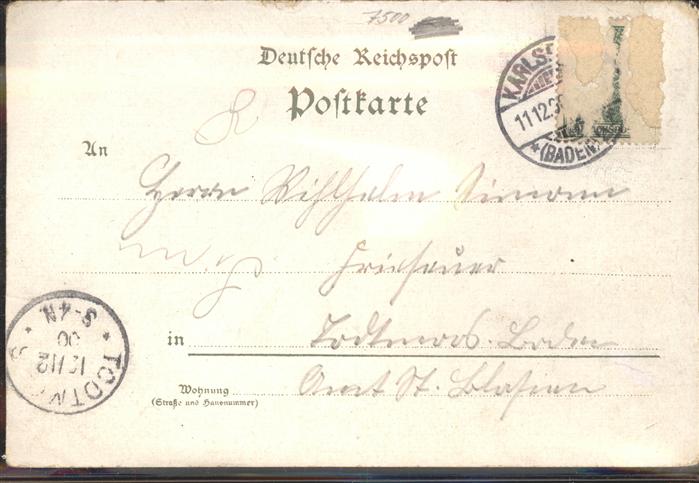 7500
Deutsche Reichspost
Postkarte
KARLS
11.12.
(BADEN)
An
Herrn Wilhelm Simon
Friseuer
in Todtmoos-Baden
Wohnung
(Straße und Hausnummer)
Amt St. Blasien
TODTM
12
00
3-4N